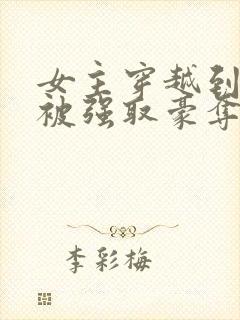 女主穿越到
被强取豪夺
李彩梅